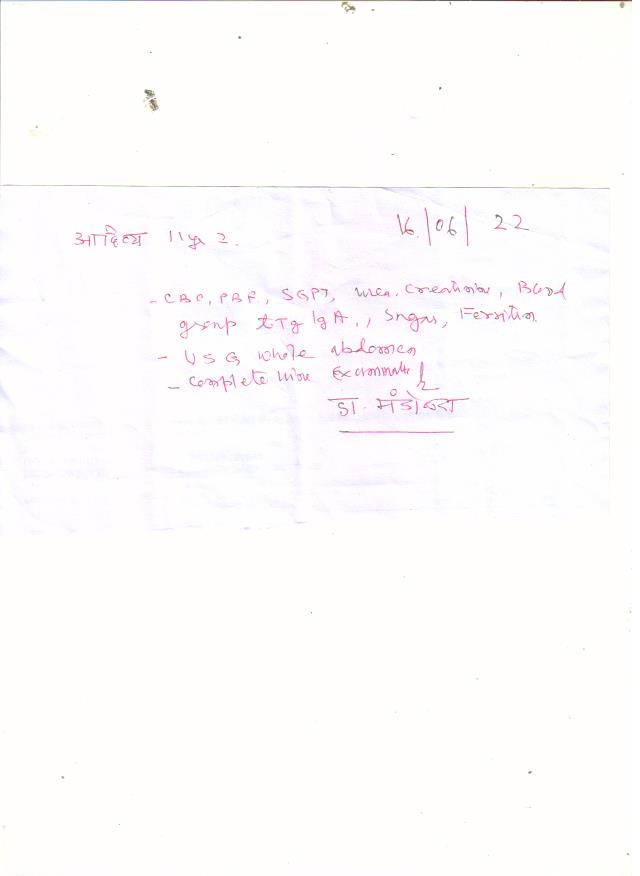 आदित्य 11 yr 2. 16/06/22
- CBC, PBF, SGPT, urea. Creatinine, Blood
group tTg IgA,, Sugar, Ferritin
- USG whole abdomen
- complete urine Examination
डा. मंडोवरा